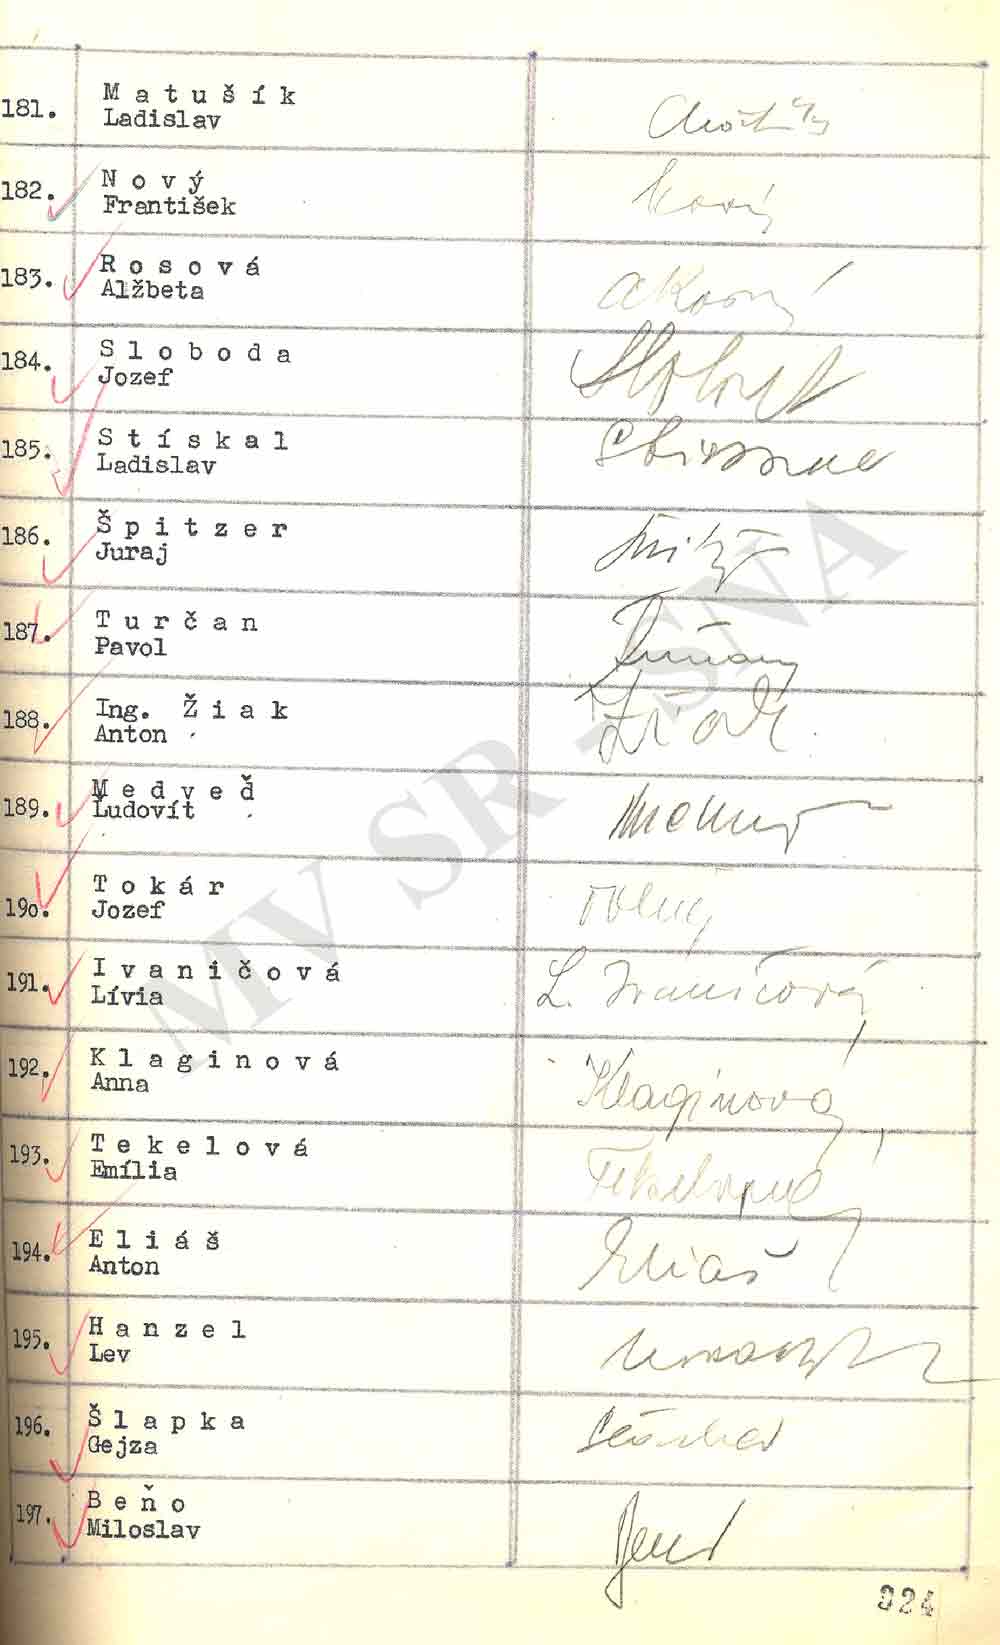 181. M a t u š í k
Ladislav
182. N o v ý Nový
František
183. R o s o v á
Alžbeta
184. S l o b o d a
Jozef
185. S t í s k a l
Ladislav
186. Š p i t z e r
Juraj
187. T u r č a n
Pavol
188. Ing. Ž i a k Žiak
Anton
189. M e d v e ď
Ľudovít
190. T o k á r
Jozef
191. I v a n i č o v á L. Ivaničová
Lívia
192. K l a g i n o v á Klaginová
Anna
193. T e k e l o v á Tekelová
Emília
194. E l i á š Eliaš
Anton
195. H a n z e l
Lev
196. Š l a p k a
Gejza
197. B e ň o
Miloslav
MV SR - SNA
924